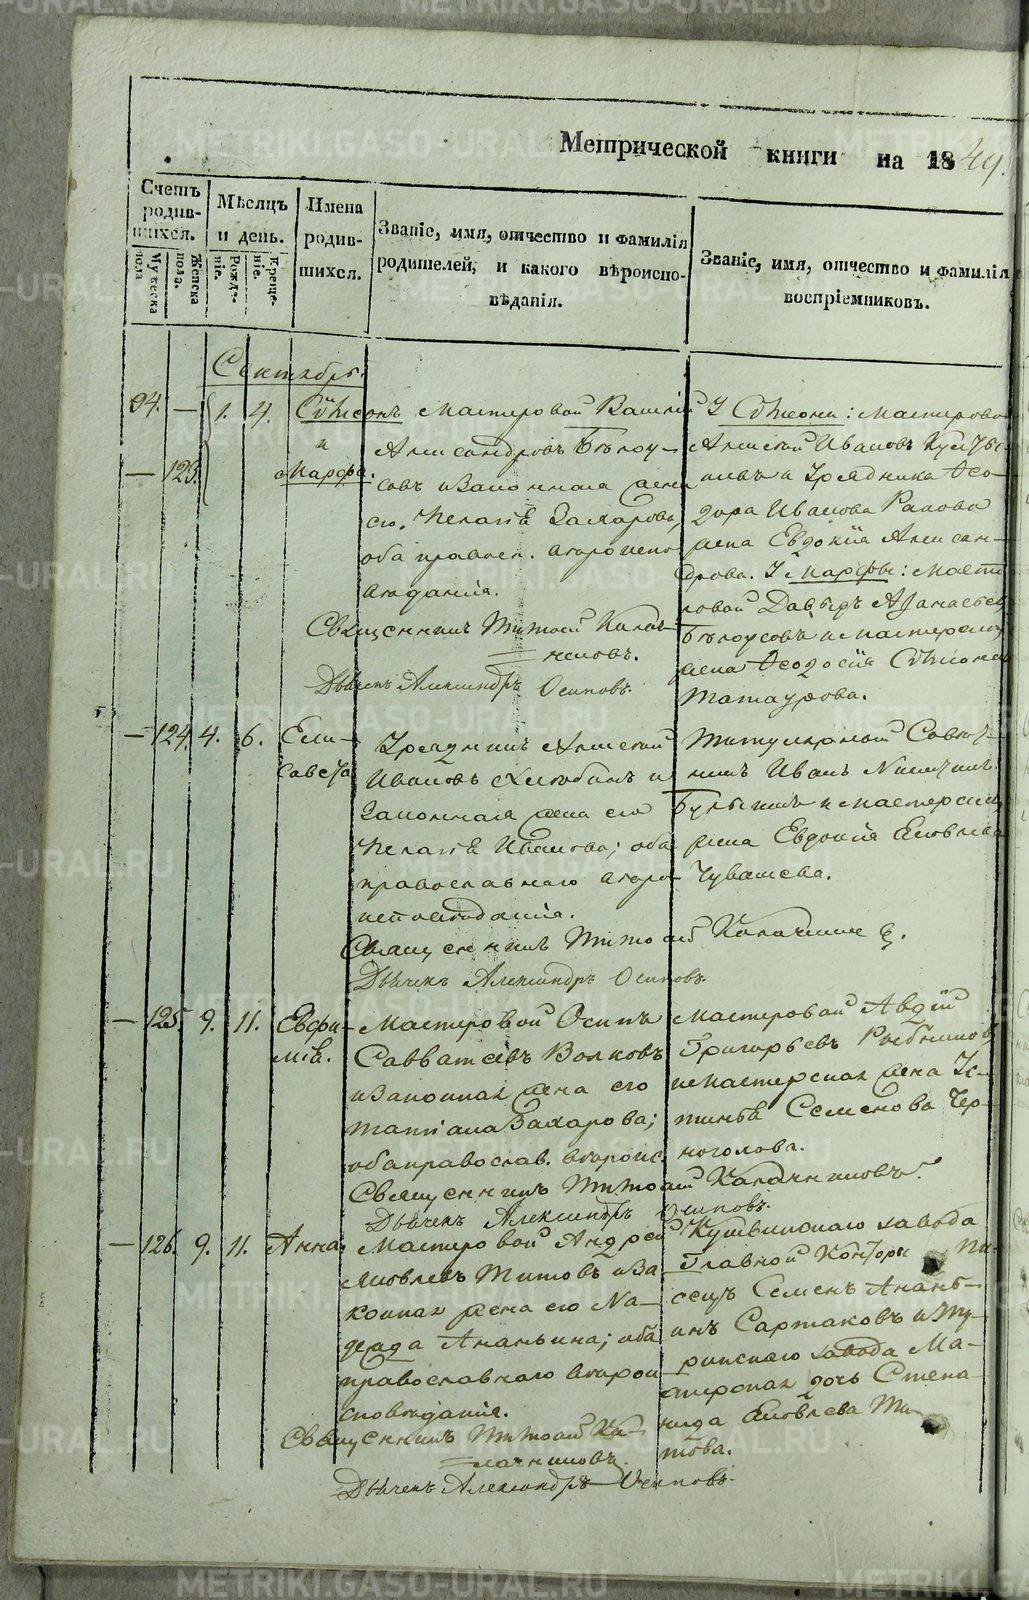 METRIKI.GASO-URAL.RU
Метрической книги на 1849.
Счетъ родившихся.
Мужеска пола.
Женска пола.
Мѣсяцъ и день.
Рожденіе.
Крещеніе.
Имена родившихся.
Званіе, имя, отчество и фамилія
родителей, и какого вѣроиспо-
вѣданія.
Званіе, имя, отчество и фамилія
воспріемниковъ.
Сентябрь.
94. — 1. 4. Сѵмеонъ
и
— 123. Марфа.
Мастеровой Василій
Александровъ Бѣлоу-
совъ и Законная жена
его, Пелагія Захарова,
оба правосл. вѣроиспо-
вѣданія.
Священникъ Тимофей Калач-
никовъ.
Дьячекъ Александръ Осиповъ.
У Сѵмеона: мастеровой
Алексей Ивановъ
и Урядника Ѳео-
дора Иванова Рапова
жена Евдокія Алексан-
дрова. У Марфы: масте-
ровой Давыдъ Аѳанасьев
Бѣлоусовъ и мастерская
жена Ѳеодосія Сѵмеонова
Татаурова.
— 124. 4. 6. Ели-
савета
Урядникъ Алексей
Ивановъ и
Законная жена его
Пелагія Иванова; оба
православнаго вѣро-
исповѣданія.
Священникъ Тимофей Калачников.
Дьячекъ Александръ Осиповъ.
Титулярной Совѣт-
никъ Иванъ Никитинъ
и мастерская
жена Евдокія Яковлева
Чувашева.
— 125. 9. 11. Евфи-
мія.
Мастеровой Осипъ
Савватеевъ Волковъ
и Законная жена его
Татіана Захарова;
оба православ. вѣроисп.
Священникъ Тимофей Калачниковъ.
Дьячекъ Александръ Осиповъ.
Мастеровой Авдій
Григорьевъ
и мастерская жена Ус-
тинья Семенова Чер-
ноголова.
— 126. 9. 11. Анна.
Мастеровой Андрей
Яковлевъ Титовъ и За-
конная жена его На-
дежда Ананьина; оба
православнаго вѣрои-
сповѣданія.
Священникъ Тимофей Ка-
лачниковъ.
Дьячекъ Александръ Осиповъ.
Кушвинскаго завода
Главной Конторы Пи-
сецъ Семенъ Ананьи-
инъ Сартаковъ и Ту-
ринскаго завода Ма-
стерская дочь Степа-
нида Яковлева Ти-
това.